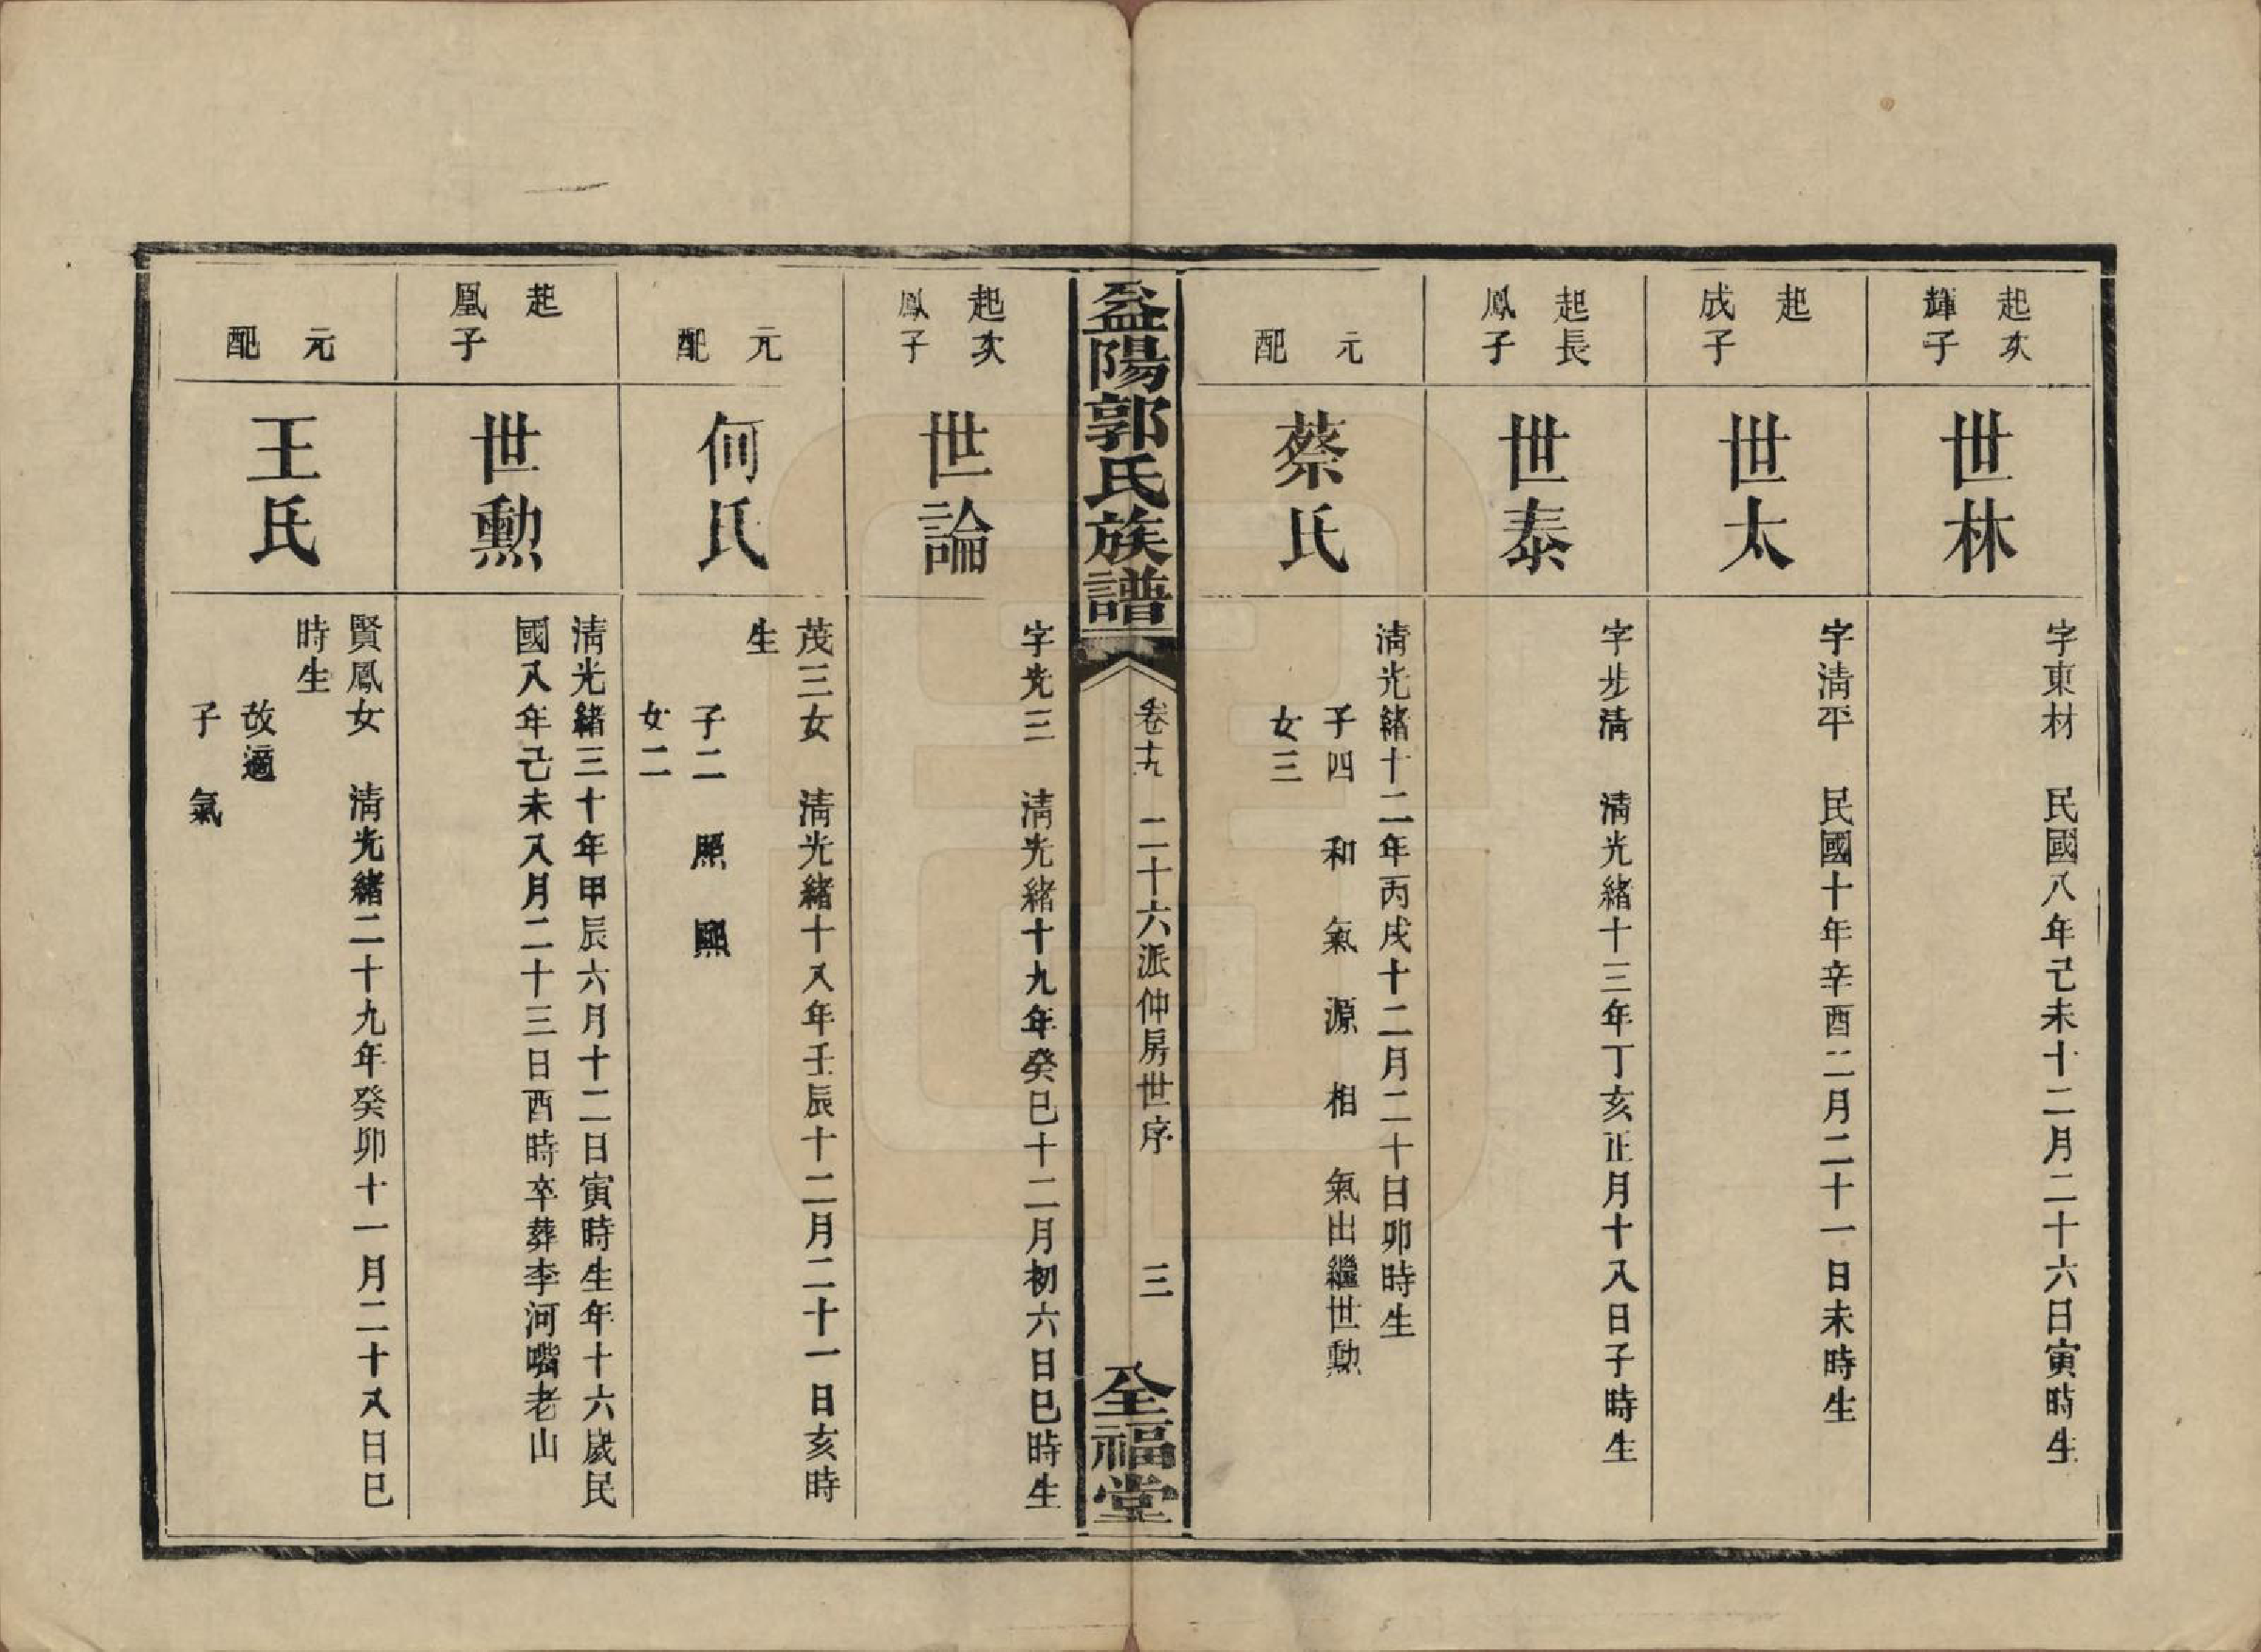 起次
輝子
世林
字東材　民國八年己未十二月二十六日寅時生
起
成子
世太
字清平　民國十年辛酉二月二十一日未時生
起長
鳳子
世泰
字步清　清光緒十三年丁亥正月十八日子時生
元
配
蔡氏
清光緒十二年丙戌十二月二十日卯時生
子四　和　氣　源　相　氣出繼世勳
女三
益陽郭氏族譜
卷十九　二十六派仲房世序　三
全福堂
起次
鳳子
世論
字光三　清光緒十九年癸巳十二月初六日巳時生
元
配
何氏
茂三女　清光緒十八年壬辰十二月二十一日亥時
生
子二　照　熙
女二
起
凰子
世勳
清光緒三十年甲辰六月十二日寅時生年十六歲民
國八年己未八月二十三日酉時卒葬李河嘴老山
元
配
王氏
賢鳳女　清光緒二十九年癸卯十一月二十八日巳
時生
改適
子　氣